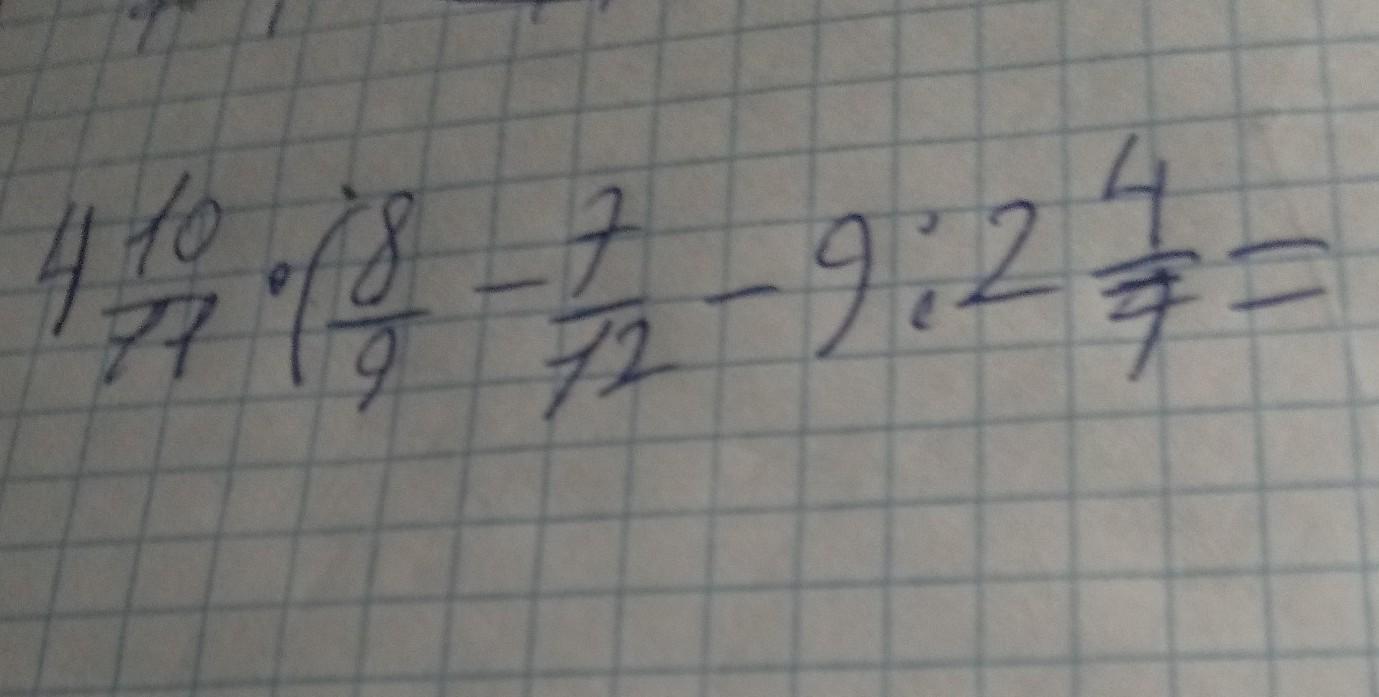 4 10/11 · (8/9 - 7/12 - 9 : 2 4/7 =